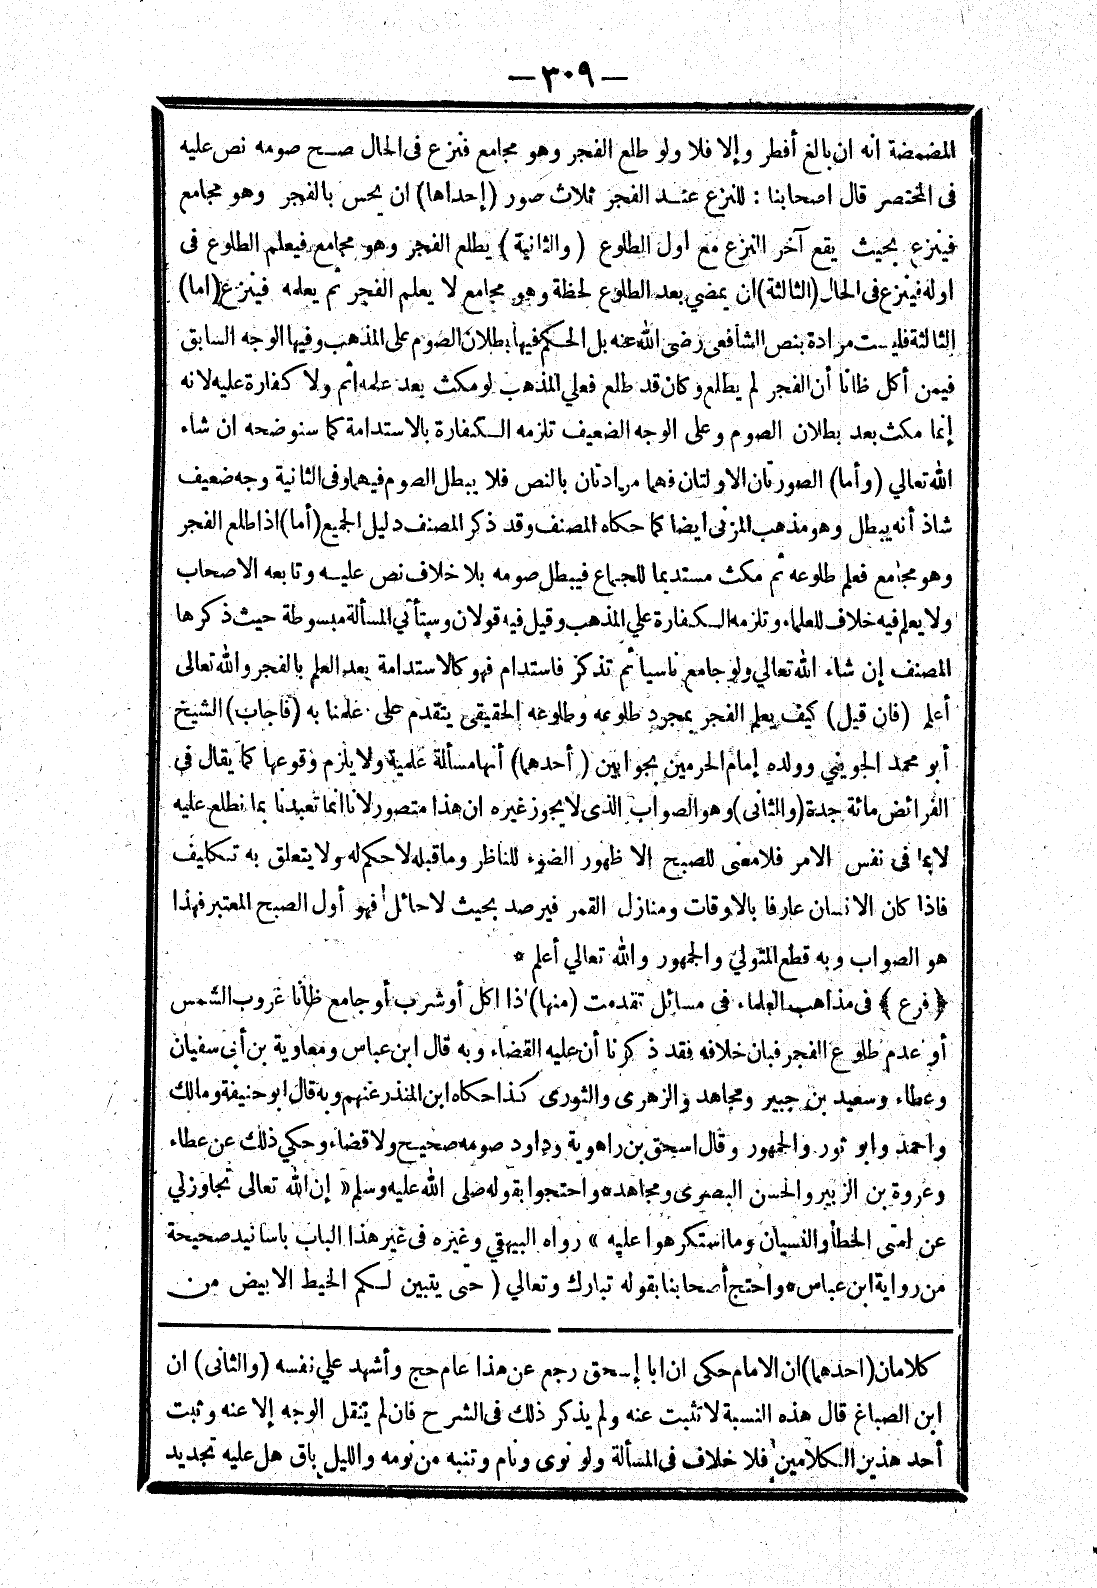 — ٣٠٩ —
المضمضة انه ان بالغ أفطر وإلا فلا ولو طلع الفجر وهو مجامع فنزع فى الحال صح صومه نص عليه
فى المختصر قال اصحابنا : للنزع عند الفجر ثلاث صور (إحداها) ان يحس بالفجر وهو مجامع
فينزع بحيث يقع آخر النزع مع اول الطلوع (والثانية) يطلع الفجر وهو مجامع فيعلم الطلوع فى
اوله فينزع فى الحال (الثالثة) ان يمضي بعد الطلوع لحظة وهو مجامع لا يعلم الفجر ثم يعلمه فينزع (اما)
الثالثة فليست مرادة بنص الشافعى رضى الله عنه بل الحكم فيها بطلان الصوم على المذهب وفيها الوجه السابق
فيمن أكل ظانا أن الفجر لم يطلع وكان قد طلع فعلي المذهب لو مكث بعد علمه اثم ولا كفارة عليه لانه
إنما مكث بعد بطلان الصوم وعلى الوجه الضعيف تلزمه الكفارة بالاستدامة كما سنوضحه ان شاء
الله تعالي (وأما) الصورتان الاولتان فهما مرادتان بالنص فلا يبطل الصوم فيهما وفى الثانية وجه ضعيف
شاذ أنه يبطل وهو مذهب المزنى ايضا كما حكاه المصنف وقد ذكر المصنف دليل الجميع (أما) اذا طلع الفجر
وهو مجامع فعلم طلوعه ثم مكث مستديما للجماع فيبطل صومه بلا خلاف نص عليه وتابعه الاصحاب
ولا يعلم فيه خلاف للعلماء وتلزمه الكفارة علي المذهب وقيل فيه قولان وستأتي المسألة مبسوطة حيث ذكرها
المصنف إن شاء الله تعالي ولو جامع ناسيا ثم تذكر فاستدام فهو كالاستدامة بعد العلم بالفجر والله تعالى
أعلم (فان قيل) كيف يعلم الفجر بمجرد طلوعه وطلوعه الحقيقى يتقدم على علمنا به (فأجاب) الشيخ
أبو محمد الجويني وولده إمام الحرمين بجوابين (أحدهما) أنها مسألة علمية ولا يلزم وقوعها كما يقال في
الفرائض مائة جدة (والثانى) وهو الصواب الذى لا يجوز غيره ان هذا متصور لانا انما تعبدنا بما نطلع عليه
لا بما فى نفس الامر فلا معنى للصبح الا ظهور الضوء للناظر وما قبله لا حكم له ولا يتعلق به تكليف
فاذا كان الانسان عارفا بالاوقات ومنازل القمر فيرصد بحيث لا حائل فهو أول الصبح المعتبر فهذا
هو الصواب وبه قطع المتولي والجمهور والله تعالي أعلم *
﴿فرع﴾ فى مذاهب العلماء فى مسائل تقدمت (منها) اذا اكل أو شرب أو جامع ظانا غروب الشمس
أو عدم طلوع الفجر فبان خلافه فقد ذكرنا أن عليه القضاء وبه قال ابن عباس ومعاوية بن أبى سفيان
وعطاء وسعيد بن جبير ومجاهد والزهرى والثورى كذا حكاه ابن المنذر عنهم وبه قال ابو حنيفة ومالك
واحمد وابو ثور والجمهور وقال اسحق بن راهوية وداود صومه صحيح ولا قضاء وحكي ذلك عن عطاء
وعروة بن الزبير والحسن البصرى ومجاهد * واحتجوا بقوله صلى الله عليه وسلم « إن الله تعالى تجاوز لي
عن امتى الخطأ والنسيان وما استكرهوا عليه » رواه البيهقي وغيره فى غير هذا الباب باسانيد صحيحة
من رواية ابن عباس * واحتج أصحابنا بقوله تبارك وتعالي ( حتى يتبين لكم الخيط الابيض من
كلامان (احدهما) ان الامام حكى ان ابا إسحق رجع عن هذا عام حج وأشهد علي نفسه (والثانى) ان
ابن الصباغ قال هذه النسبة لا تثبت عنه ولم يذكر ذلك فى الشرح فان لم ينقل الوجه إلا عنه وثبت
أحد هذين الكلامين فلا خلاف فى المسألة ولو نوى ونام وتنبه من نومه والليل باق هل عليه تجديد